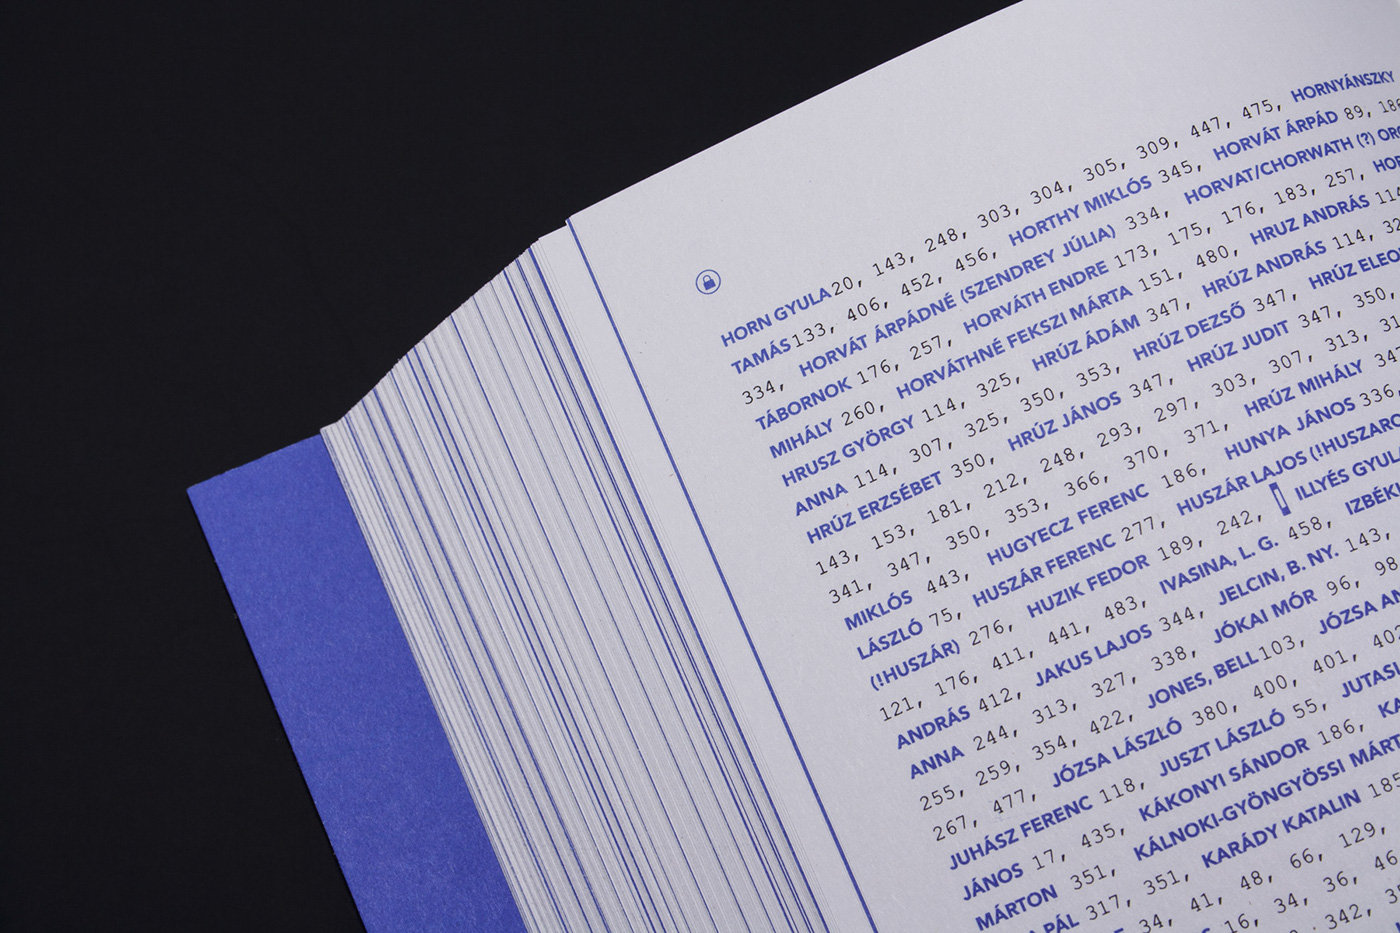 HORN GYULA 20, 143, 248, 303, 304, 305, 309, 447, 475, HORNYÁNSZKY
TAMÁS 133, 406, 452, 456, HORTHY MIKLÓS 345, HORVÁT ÁRPÁD 89, 186
334, HORVÁT ÁRPÁDNÉ (SZENDREY JÚLIA) 334, HORVAT/CHORWATH (?)
TÁBORNOK 176, 257, HORVÁTH ENDRE 173, 175, 176, 183, 257,
MIHÁLY 260, HORVÁTHNÉ FEKSZI MÁRTA 151, 480, HRUZ ANDRÁS 114
HRUSZ GYÖRGY 114, 325, HRÚZ ÁDÁM 347, HRÚZ ANDRÁS 114,
ANNA 114, 307, 325, 350, 353, HRÚZ DEZSŐ 347, HRÚZ
HRÚZ ERZSÉBET 350, HRÚZ JÁNOS 347, HRÚZ JUDIT 347, 350,
143, 153, 181, 212, 248, 293, 297, 303, 307, 313,
341, 347, 350, 353, 366, 370, 371, HRÚZ MIHÁLY 347
MIKLÓS 443, HUGYECZ FERENC 186, HUNYA JÁNOS 336,
LÁSZLÓ 75, HUSZÁR FERENC 277, HUSZÁR LAJOS
(!HUSZÁR) 276, HUZIK FEDOR 189, 242, I ILLYÉS GYULA
121, 176, 411, 441, 483, IVASINA, L. G. 458, IZBÉKI
ANDRÁS 412, JAKUS LAJOS 344, JELCIN, B. NY. 143,
ANNA 244, 313, 327, 338, JÓKAI MÓR 96, 98
255, 259, 354, 422, JONES, BELL 103, JÓZSA
267, 477, JÓZSA LÁSZLÓ 380, 400, 401, 402
JUHÁSZ FERENC 118, JUSZT LÁSZLÓ 55, JUTASI
JÁNOS 17, 435, KÁKONYI SÁNDOR 186,
MÁRTON 351, KÁLNOKI-GYÖNGYÖSSI
PÁL 317, 351, KARÁDY KATALIN 185
34, 41, 48, 66, 129,
16, 34, 36, 46
342,